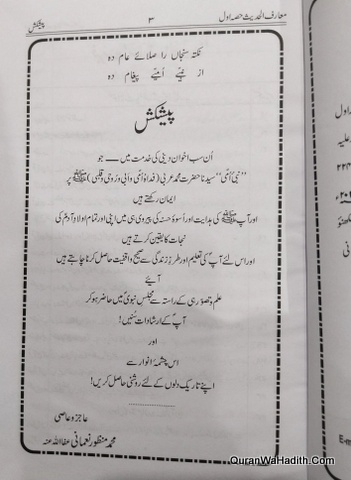 معارف الحدیث حصہ اول
۳
پیشکش
نکتہ سنجاں را صلائے عام دہ
از نبیّے اُمیّے پیغام دہ
پیشکش
اُن سب اخوانِ دینی کی خدمت میں — جو
”نبی اُمّی“ سیدنا حضرت محمد عربی (فداہ اُمّی وابی ورُوحی وقلبی) ﷺ پر
ایمان رکھتے ہیں
اور آپ ﷺ کی ہدایت اور اُسوۂ حسنہ کی پیروی ہی میں اپنی اور تمام اولادِ آدم کی
نجات کا یقین کرتے ہیں
اور اس لئے آپ کی تعلیم اور طرزِ زندگی سے صحیح واقفیت حاصل کرنا چاہتے ہیں
آیئے
علم و تصوّر ہی کے راستہ سے مجلسِ نبویؐ میں حاضر ہو کر
آپؐ کے ارشادات سُنیں!
اور
اس چشمۂ انوار سے
اپنے تاریک دلوں کے لئے روشنی حاصل کریں!
عاجز و عاصی
محمد منظور نعمانی عفا اللہ عنہ
اول
QuranWaHadith.Com